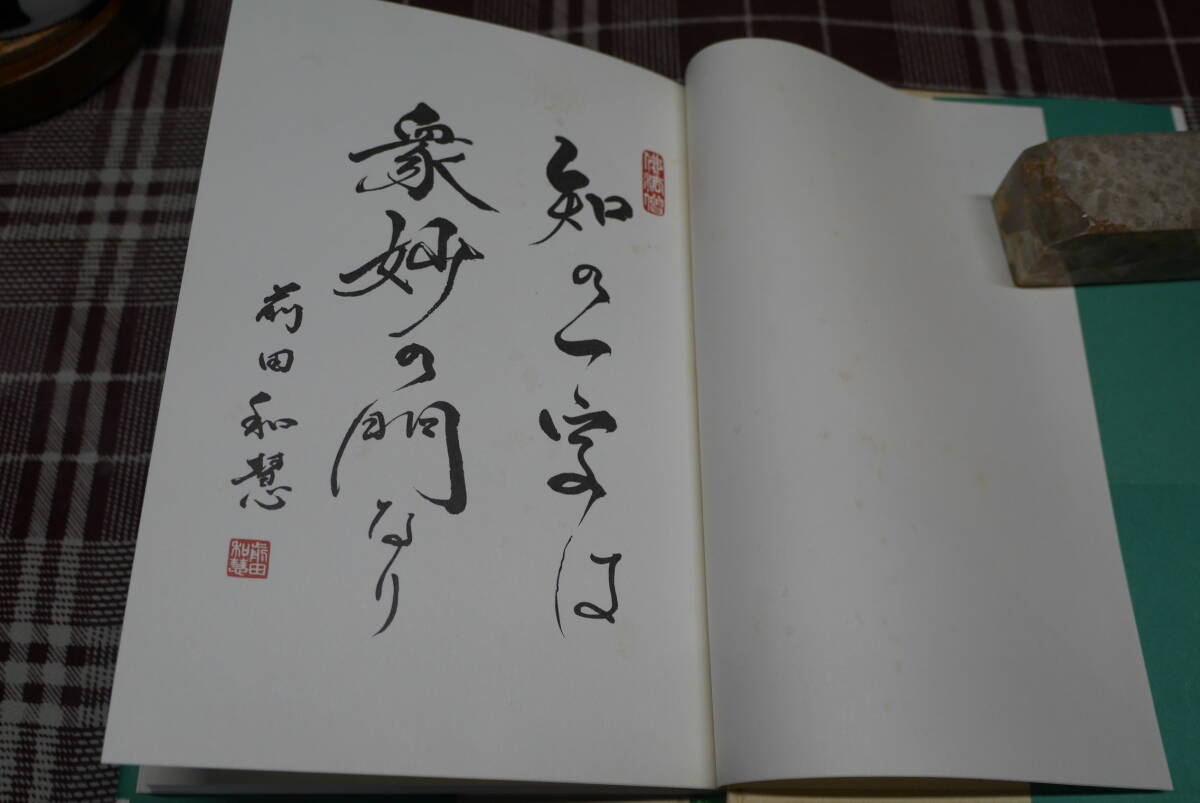 知の一字は
衆妙の門なり
前田和慧
前田
和慧